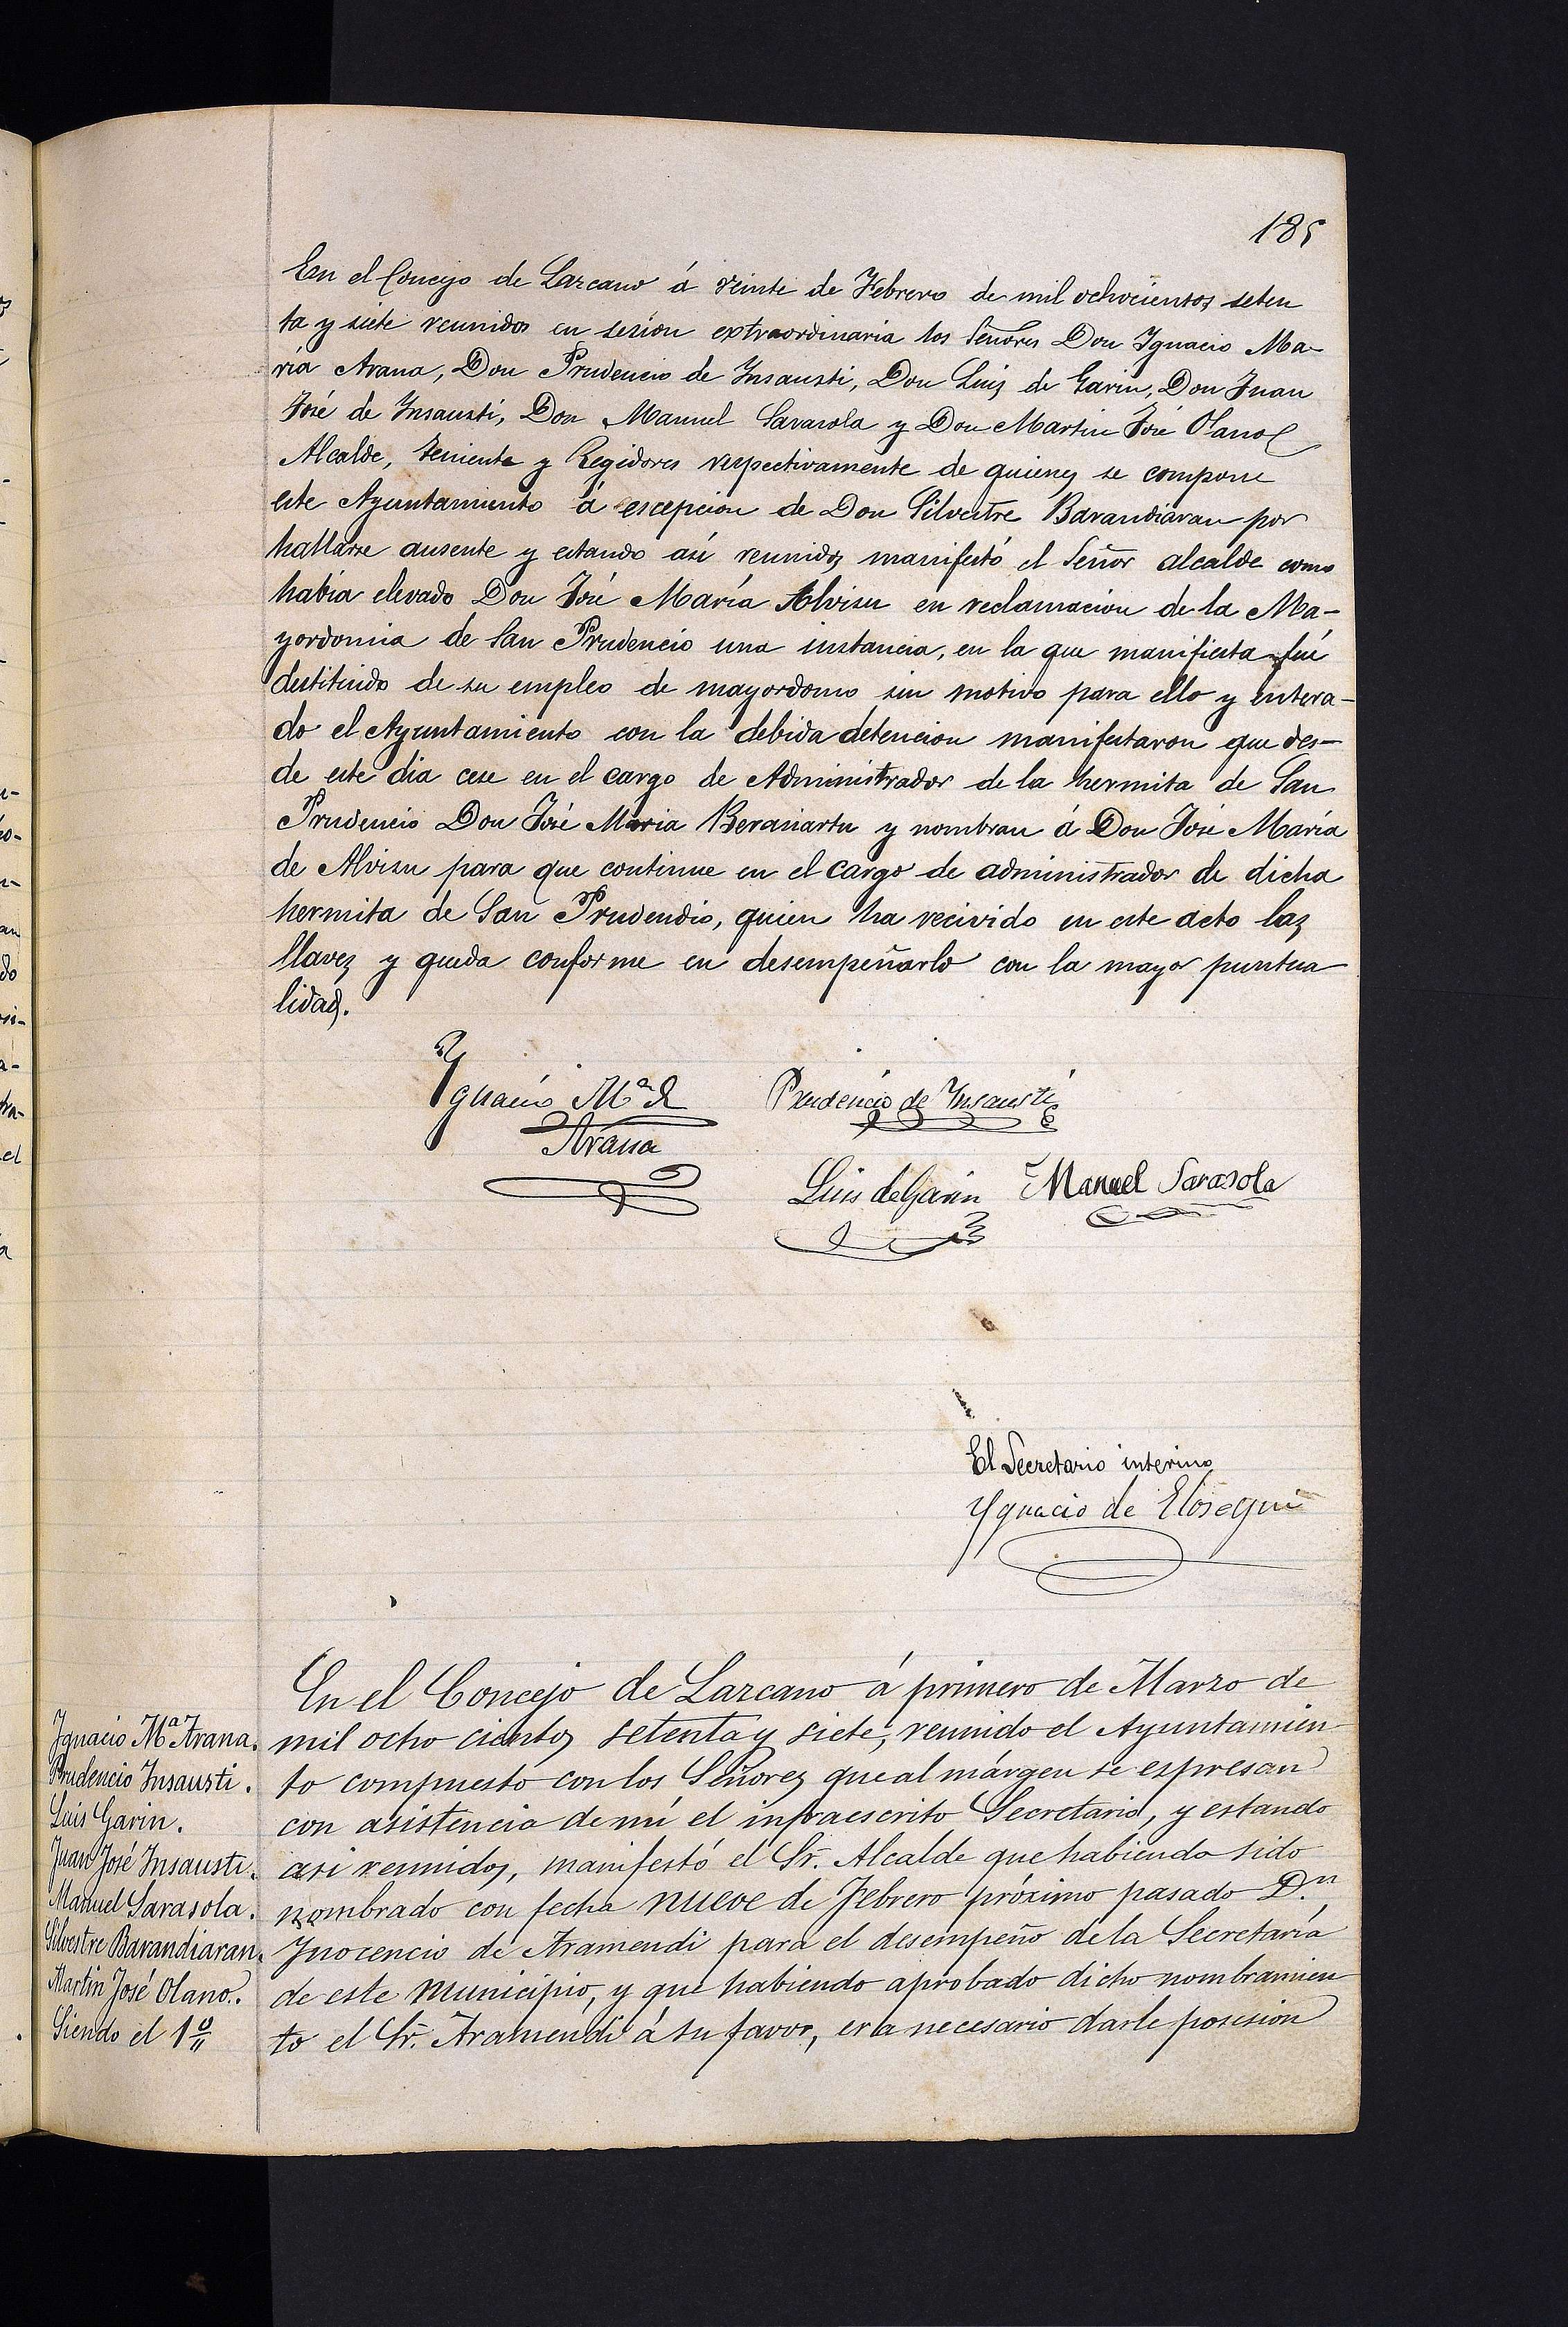 185
En el Concejo de Lazcano á veinte de Febrero de mil ochocientos seten
ta y siete reunidos en sesion extraordinaria los Señores Don Ygnacio Ma-
ria Arana, Don Prudencio de Ynsausti, Don Luis de Garin, Don Juan
José de Ynsausti, Don Manuel Sarasola y Don Martin José Olano
Alcalde, teniente y Regidores respectivamente de quienes se compone
este Ayuntamiento á escepcion de Don Silvestre Barandiaran por
hallarse ausente y estando asi reunidos manifestó el Señor alcalde como
habia elevado Don José María Alvisu en reclamacion de la Ma-
yordomia de San Prudencio una instancia, en la que manifiesta fué
destituido de su empleo de mayordomo sin motivo para ello y entera-
do el Ayuntamiento con la debida detencion manifestaron que des-
de este dia cese en el cargo de Administrador de la hermita de San
Prudencio Don José Maria Berasiartu y nombran á Don José María
de Alvisu para que continue en el cargo de administrador de dicha
hermita de San Prudendio, quien ha recivido en este acto las
llaves y queda conforme en desempeñarlo con la mayor puntua
lidad.
Ygnacio Mª de
Arana
Prudencio de Ynsausti
Luis de Garin
Manuel Sarasola
El Secretario interino
Ygnacio de Elosegui
Ignacio Mª Arana.
Prudencio Insausti.
Luis Garin.
Juan José Insausti.
Manuel Sarasola.
Silvestre Barandiaran.
Martin José Olano.
Siendo el 1º
En el Concejo de Lazcano á primero de Marzo de
mil ocho cientos setenta y siete, reunido el Ayuntamien
to compuesto con los Señores que al márgen se espresan
con asistencia de mí el infraescrito Secretario, y estando
asi reunidos, manifestó el Sr. Alcalde que habiendo sido
nombrado con fecha nueve de Febrero próximo pasado D.n
Inocencio de Aramendi para el desempeño de la Secretaría
de este Municipio, y que habiendo aprobado dicho nombramien
to el Sr. Aramendi á su favor, era necesario darle posesion